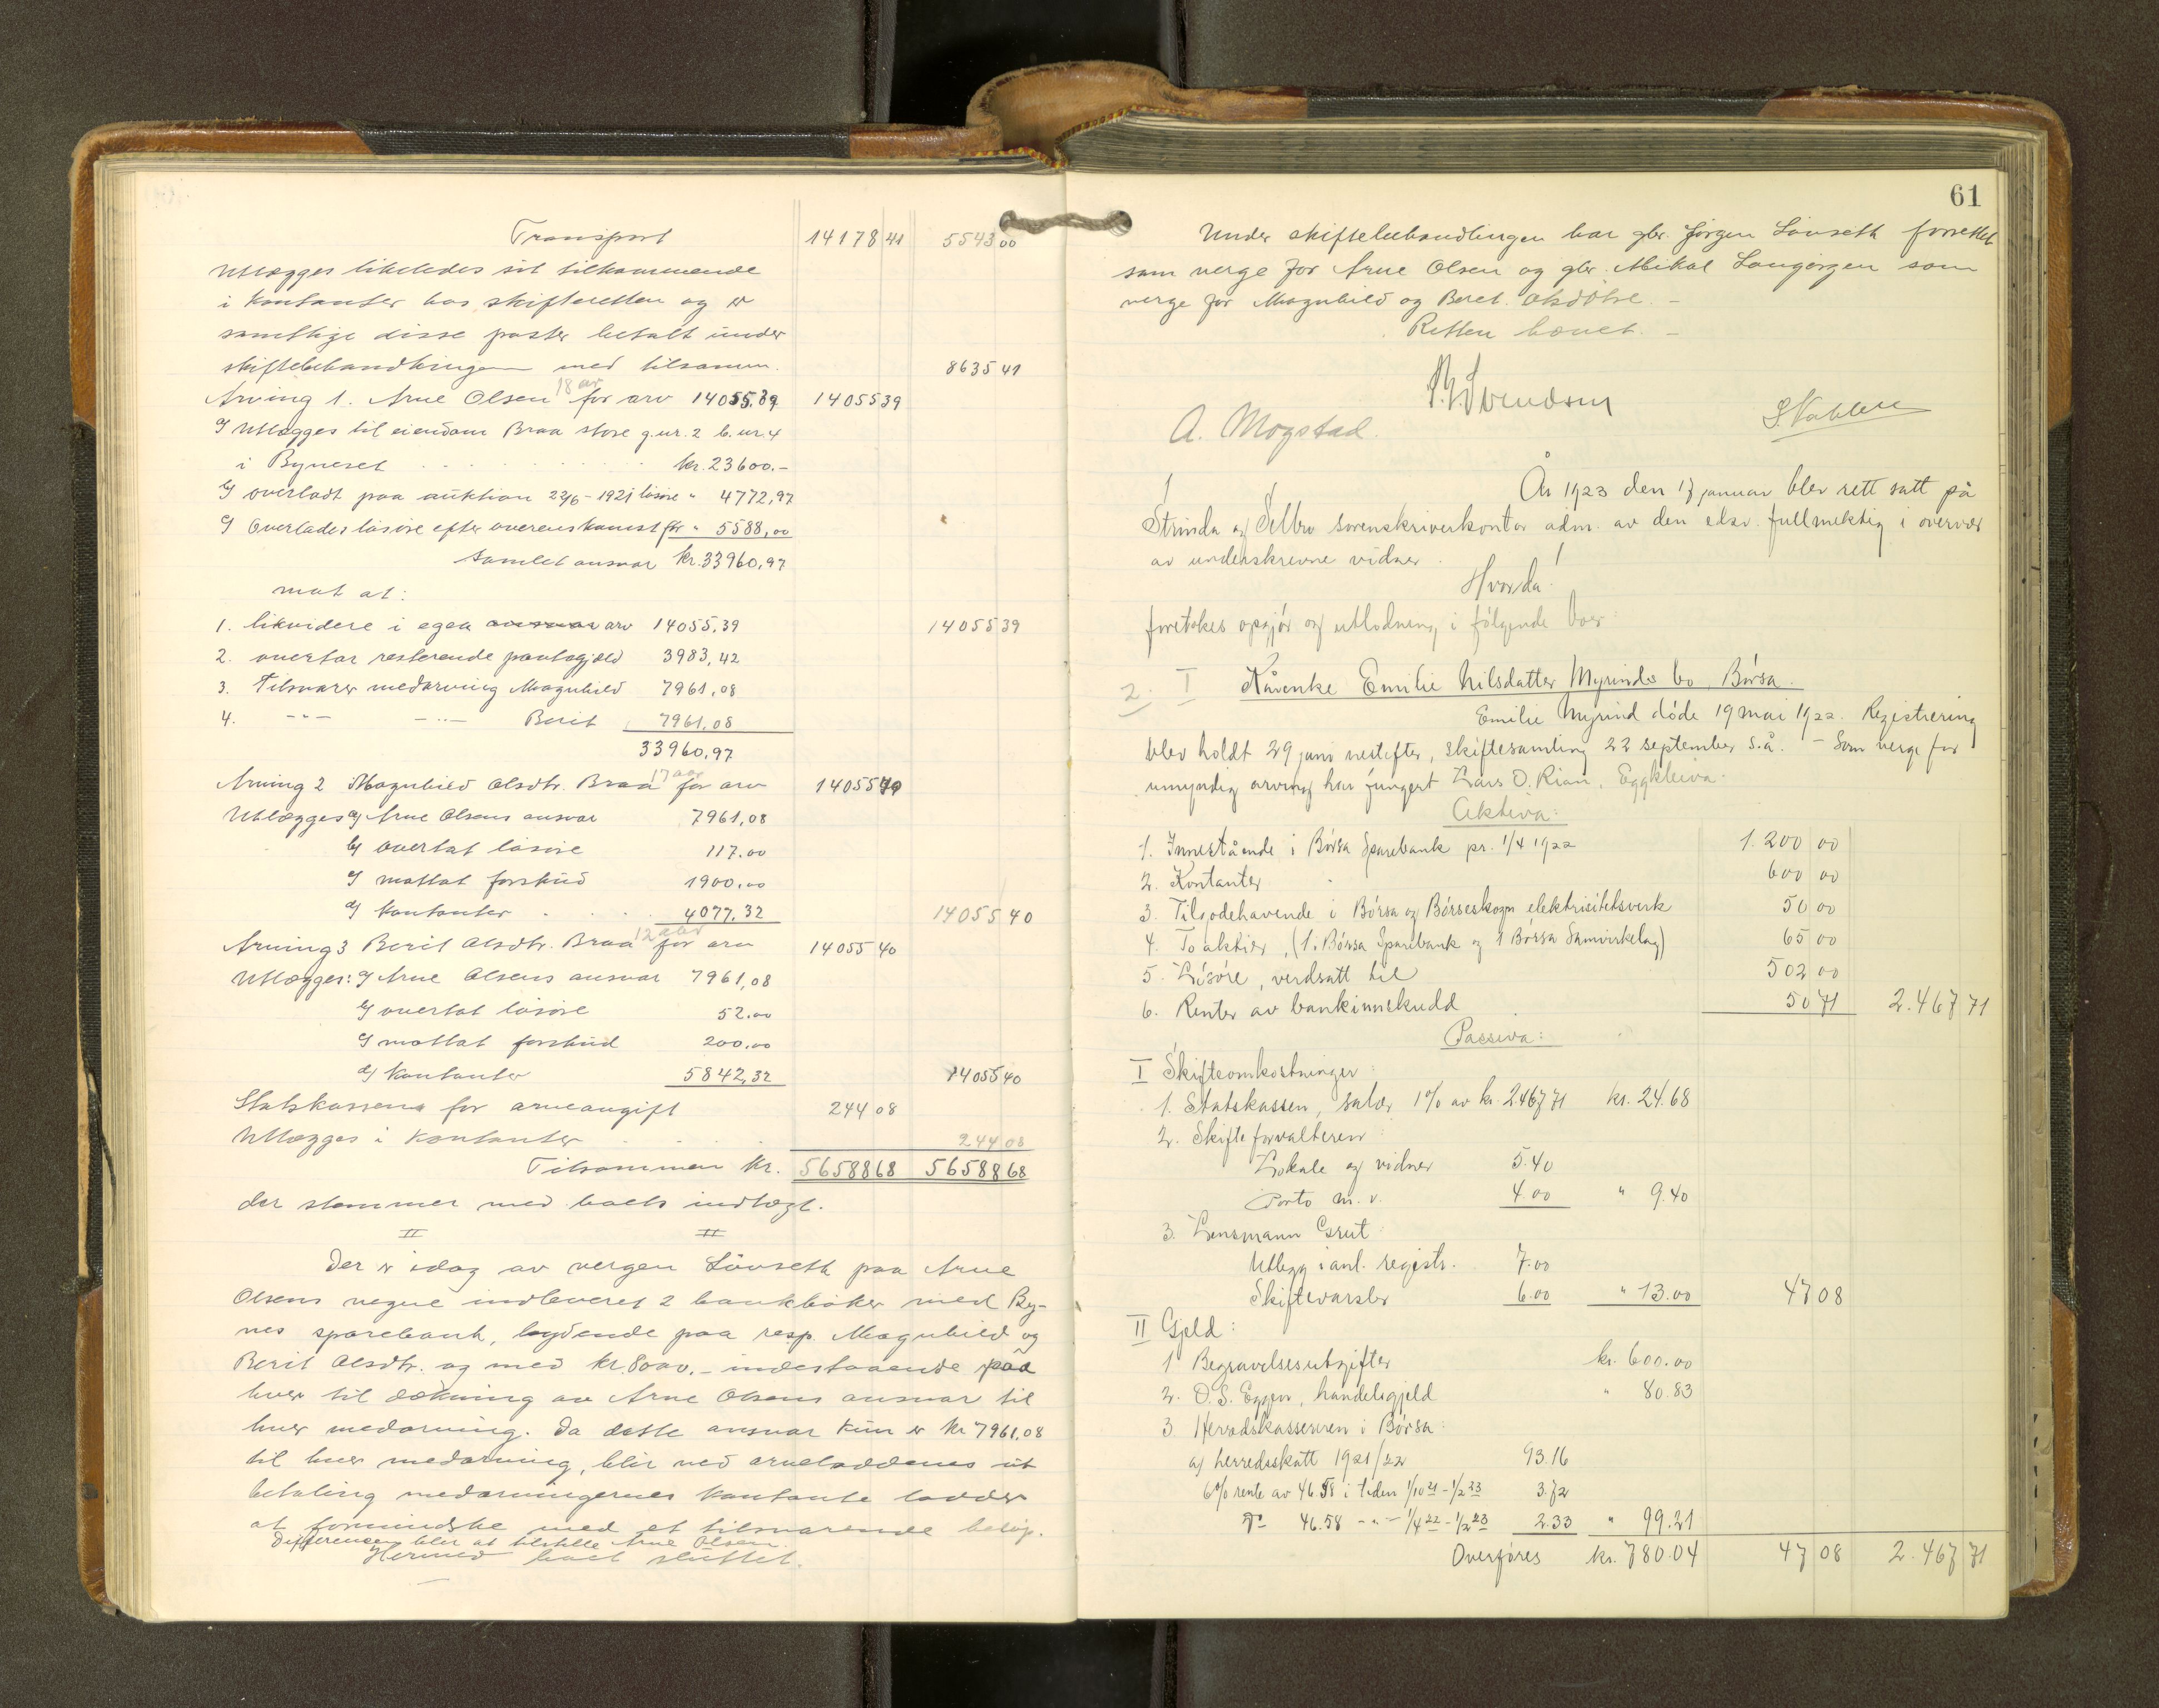 Transport 14178 41 5543 00
Utlægges likeledes sit tilkommende
i kontanter hos skifteretten og er
samtlige disse poster betalt under
skiftebehandlingen med tilsamm. 8635 41
18 aar
Arving 1. Arne Olsen for arv 14055.39 14055 39
a/ Utlægges til eiendom Braa store g.nr. 2 b.nr. 4
i Byneset . . . . . . . kr. 23600.-
b/ overladt paa auktion 22/6-1921 løsøre " 4772,97
c/ Overlades løsøre efter overenskomst for " 5588,00
Samlet ansvar kr. 33960,97
mot at:
1. likvidere i egen ansvar arv 14055,39 14055 39
2. overtar resterende pantegjæld 3983,42
3. Tilsvarer medarving Magnhild 7961,08
4. -"- -"- Berit 7961,08
33960,97
17 aar
Arving 2 Magnhild Olsdtr. Braa for arv 14055 40
Utlægges a/ Arne Olsens ansvar 7961,08
b/ overtat løsøre 117.00
c/ mottat forskud 1900,00
d/ kontanter . . . 4077,32 14055 40
12 aar
Arving 3 Berit Olsdtr. Braa for arv 14055 40
Utlægges: a/ Arne Olsens ansvar 7961,08
b/ overtat løsøre 52.00
c/ mottat forskud 200,00
d/ kontanter 5842,32 14055 40
Statskassen for arveavgift 244 08
Utlægges i kontanter . . . 244 08
Tilsammen kr. 56588 68 56588 68
der stemmer med boets indtægt.
Der er idag av vergen Lövseth paa Arne
Olsens vegne indleveret 2 bankbøker med By-
nes sparebank, lydende paa resp. Magnhild og
Berit Olsdtr. og med kr. 8000.- indestaaende paa
hver til dækning av Arne Olsens ansvar til
hver medarving. Da dette ansvar kun er kr 7961.08
til hver medarving, blir ved arveloddenes ut
betaling medarvingernes kontante lodder
at formindske med et tilsvarende beløp.
Differensen blir at tilstille Arne Olsen.
Hermed boet sluttet.
61
Under skiftebehandlingen har gbr. Jørgen Lövseth forrettet
som verge for Arne Olsen og gbr. Mikal Langørgen som
verge for Magnhild og Beret Olsdötre. -
Retten hævet. -
A. Mogstad.
År 1923 den 17 januar blev rett satt på
Strinda og Selbu sorenskriverkontor adm. av den edsv. fullmektig i overvær
av underskrevne vidner.
Hvorda!
foretokes opgjör og utlodning i fölgende boer:
2. I Kårenke Emilie Nilsdatter Myrinds bo, Börsa.
Emilie Myrind döde 19 mai 1922. Registrering
blev holdt 29 juni nestefter, skiftesamling 22 september s.å. - Som verge for
umyndig arving har fungert Lars O. Rian, Eggkleiva.
Aktiva:
1. Innestående i Börsa Sparebank pr. 1/4 1922 1.200 00
2. Kontanter 600 00
3. Tilgodehavende i Börsa og Börseskogn elektrisitetsverk 50 00
4. To aktier, (1 i Börsa Sparebank og 1 Börsa Samvirkelag) 65 00
5. Lösöre, verdsatt til 502 00
6. Renter av bankinnskudd 50 71 2.467 71
Passiva:
I Skifteomkostninger:
1. Statskassen, salær 1% av kr. 2467 71 kr. 24.68
2. Skifteforvalteren:
Lokale og vidner 5.40
Porto m.v. 4.00 " 9.40
3. Lensmann Grut:
Utlegg i anl. registr. 7.00
Skiftevarsler 6.00 " 13.00 47 08
II Gjeld:
1 Begravelsesutgifter kr. 600.00
2. O. S. Eggen, handelsgjeld " 80.83
3 Herredskassereren i Börsa:
a/ herredsskatt 1921/22 93.16
6% rente av 46.58 i tiden 1/10 21 - 1/2 23 3.72
Do 46.58 -"- 1/4 22 - 1/2 23 2.33 " 99.21
Overföres kr. 780.04 47 08 2.467 71